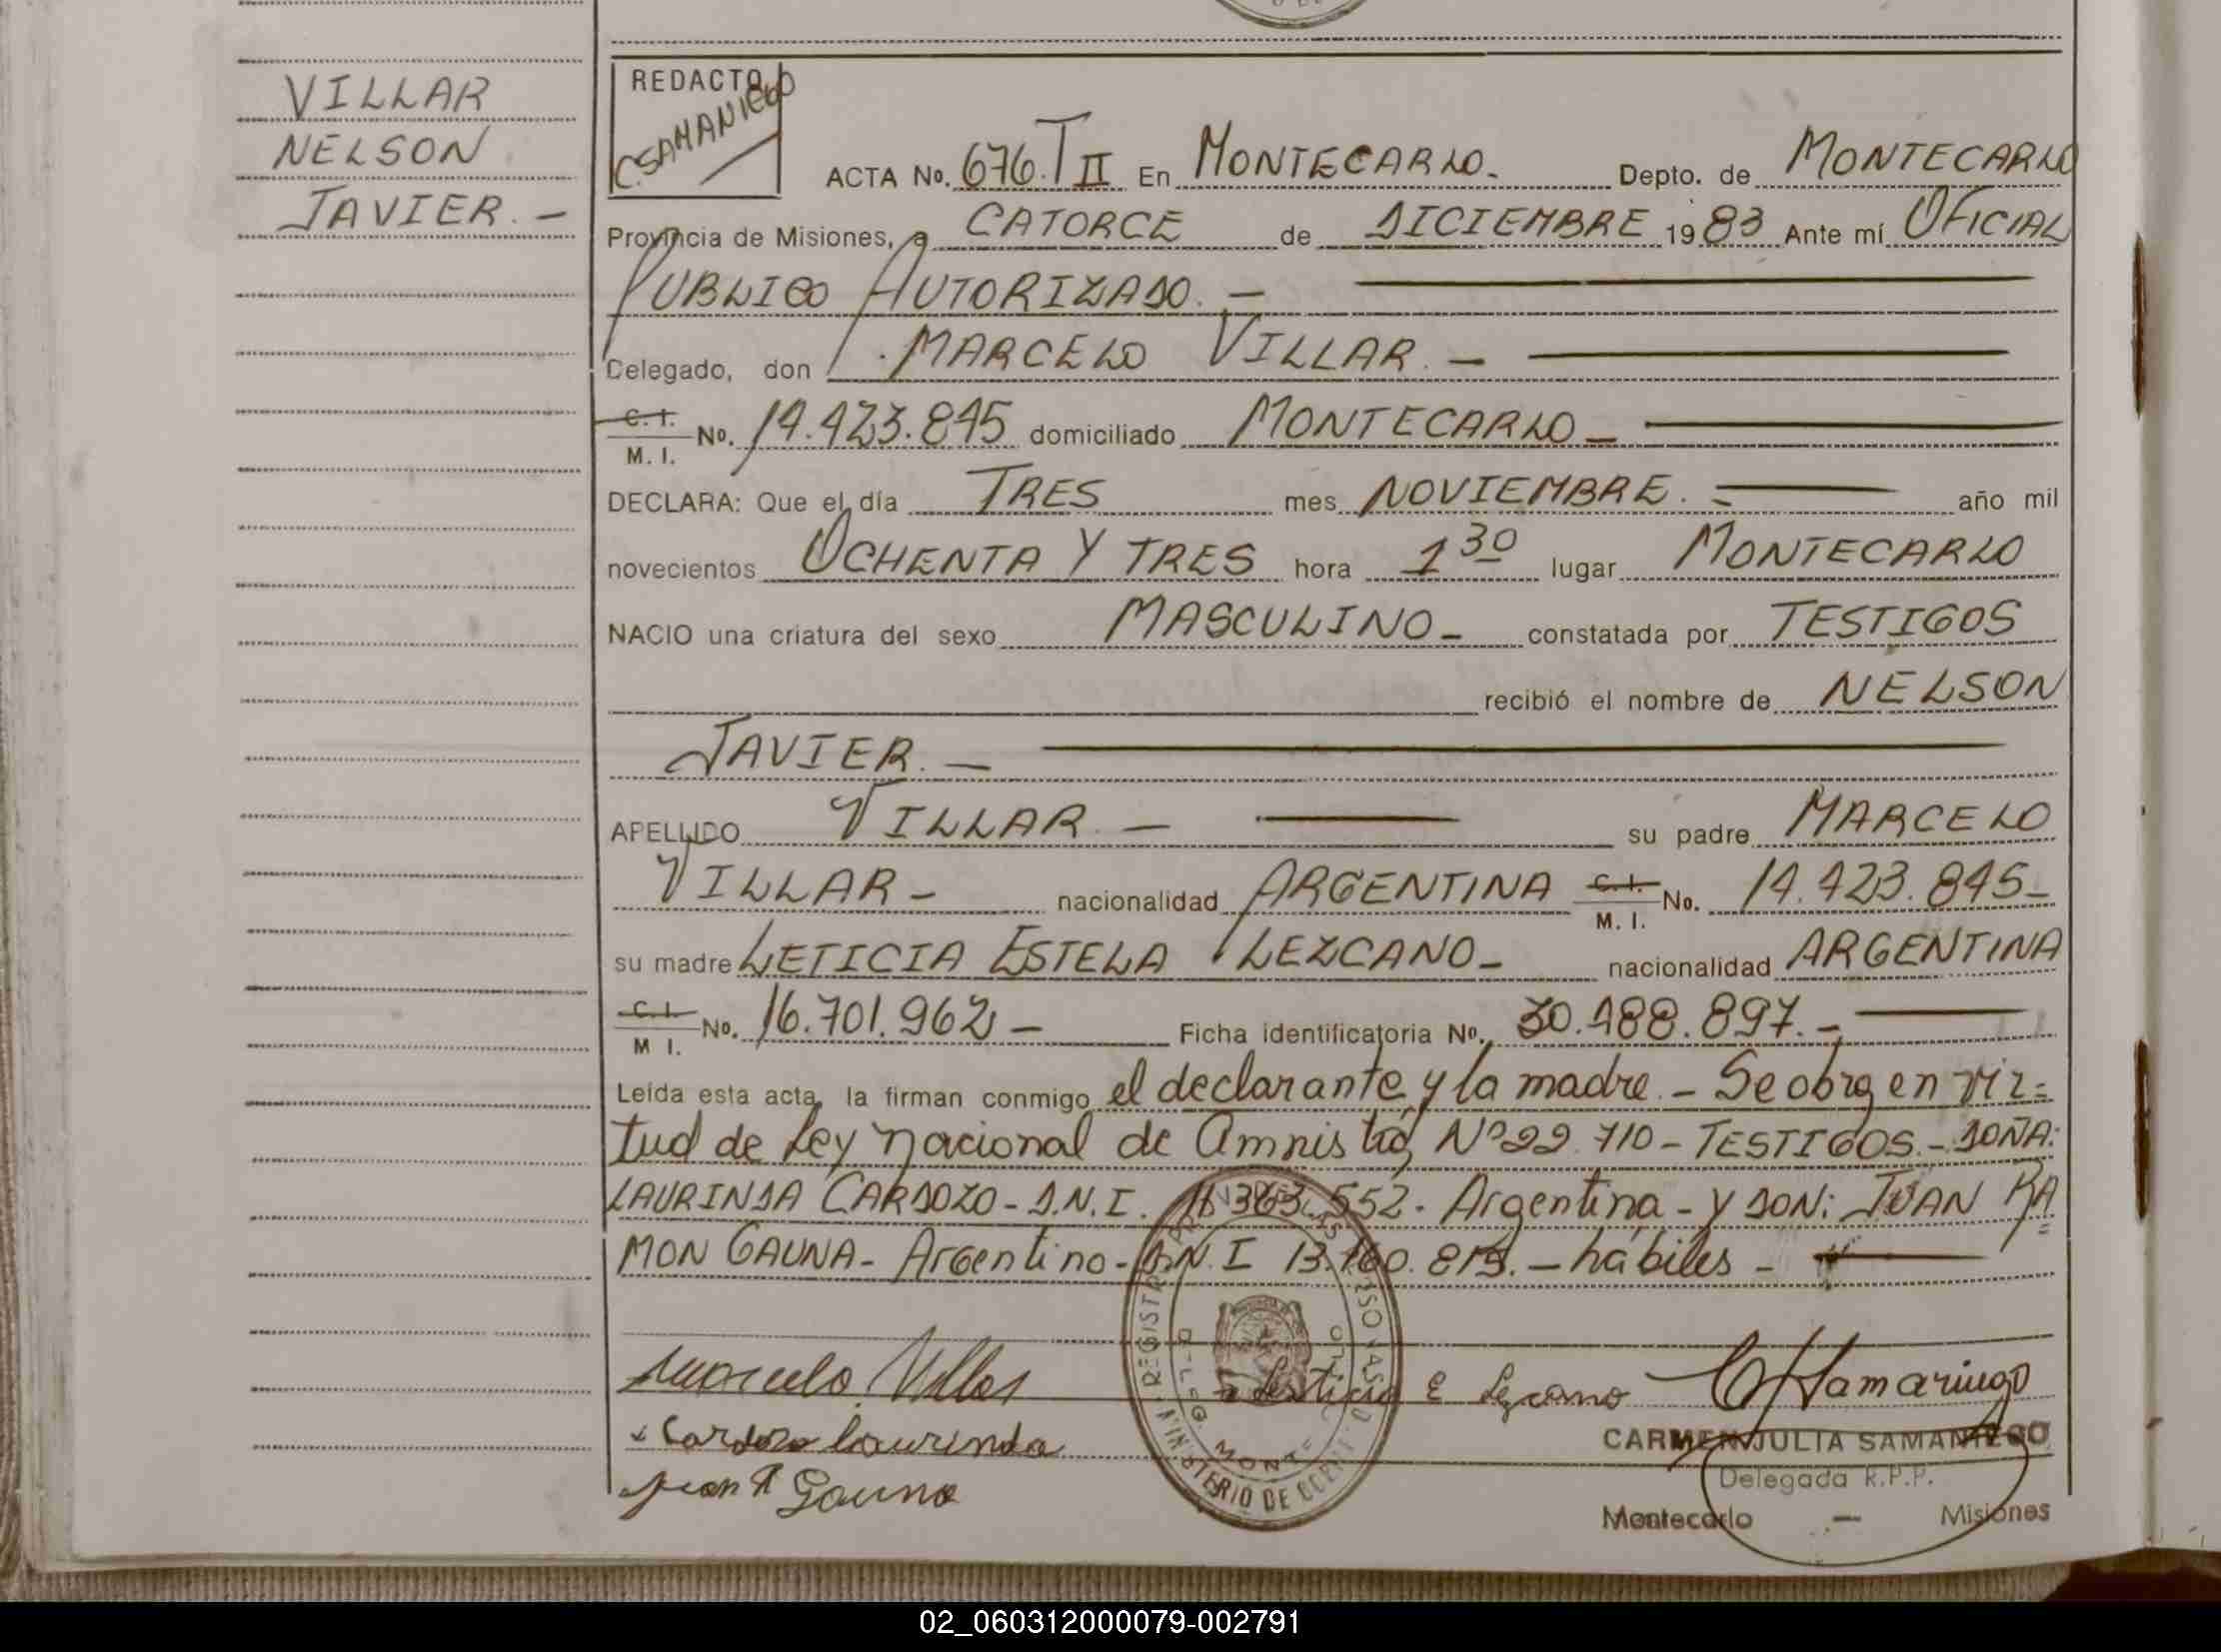 VILLAR
NELSON
JAVIER. -
REDACTO
C. SAMANIEGO
ACTA No. 676. T II En MONTECARLO. Depto. de MONTECARLO
Provincia de Misiones, a CATORCE de DICIEMBRE 1983 Ante mí OFICIAL
PUBLICO AUTORIZADO. -
Delegado, don MARCELO VILLAR. -
C. I. M. I. No. 14.423.845 domiciliado MONTECARLO -
DECLARA: Que el día TRES mes NOVIEMBRE. - año mil
novecientos OCHENTA Y TRES hora 1 30 lugar MONTECARLO
NACIO una criatura del sexo MASCULINO - constatada por TESTIGOS
recibió el nombre de NELSON
JAVIER. -
APELLIDO VILLAR. - su padre MARCELO
VILLAR - nacionalidad ARGENTINA C. I. M. I. No. 14.423.845 -
su madre LETICIA ESTELA LEZCANO - nacionalidad ARGENTINA
C. I. M I. No. 16.701.962 - Ficha identificatoria No. 30.488.897. -
Leída esta acta, la firman conmigo el declarante y la madre. - Se obra en vir=
tud de Ley nacional de Amnistía, Nº 22.710 - TESTIGOS. - DOÑA:
LAURINDA CARDOZO - D.N.I. 16.363.552. Argentina - y DON: JUAN RA=
MON GAUNA - Argentino - D.N.I 13.160.819. - hábiles -
Marcelo Villar Leticia E Lezcano
CARMEN JULIA SAMANIEGO
x Cardozo Laurinda
Delegada R.P.P.
Juan R Gauna
Montecarlo - Misiones
02_060312000079-002791